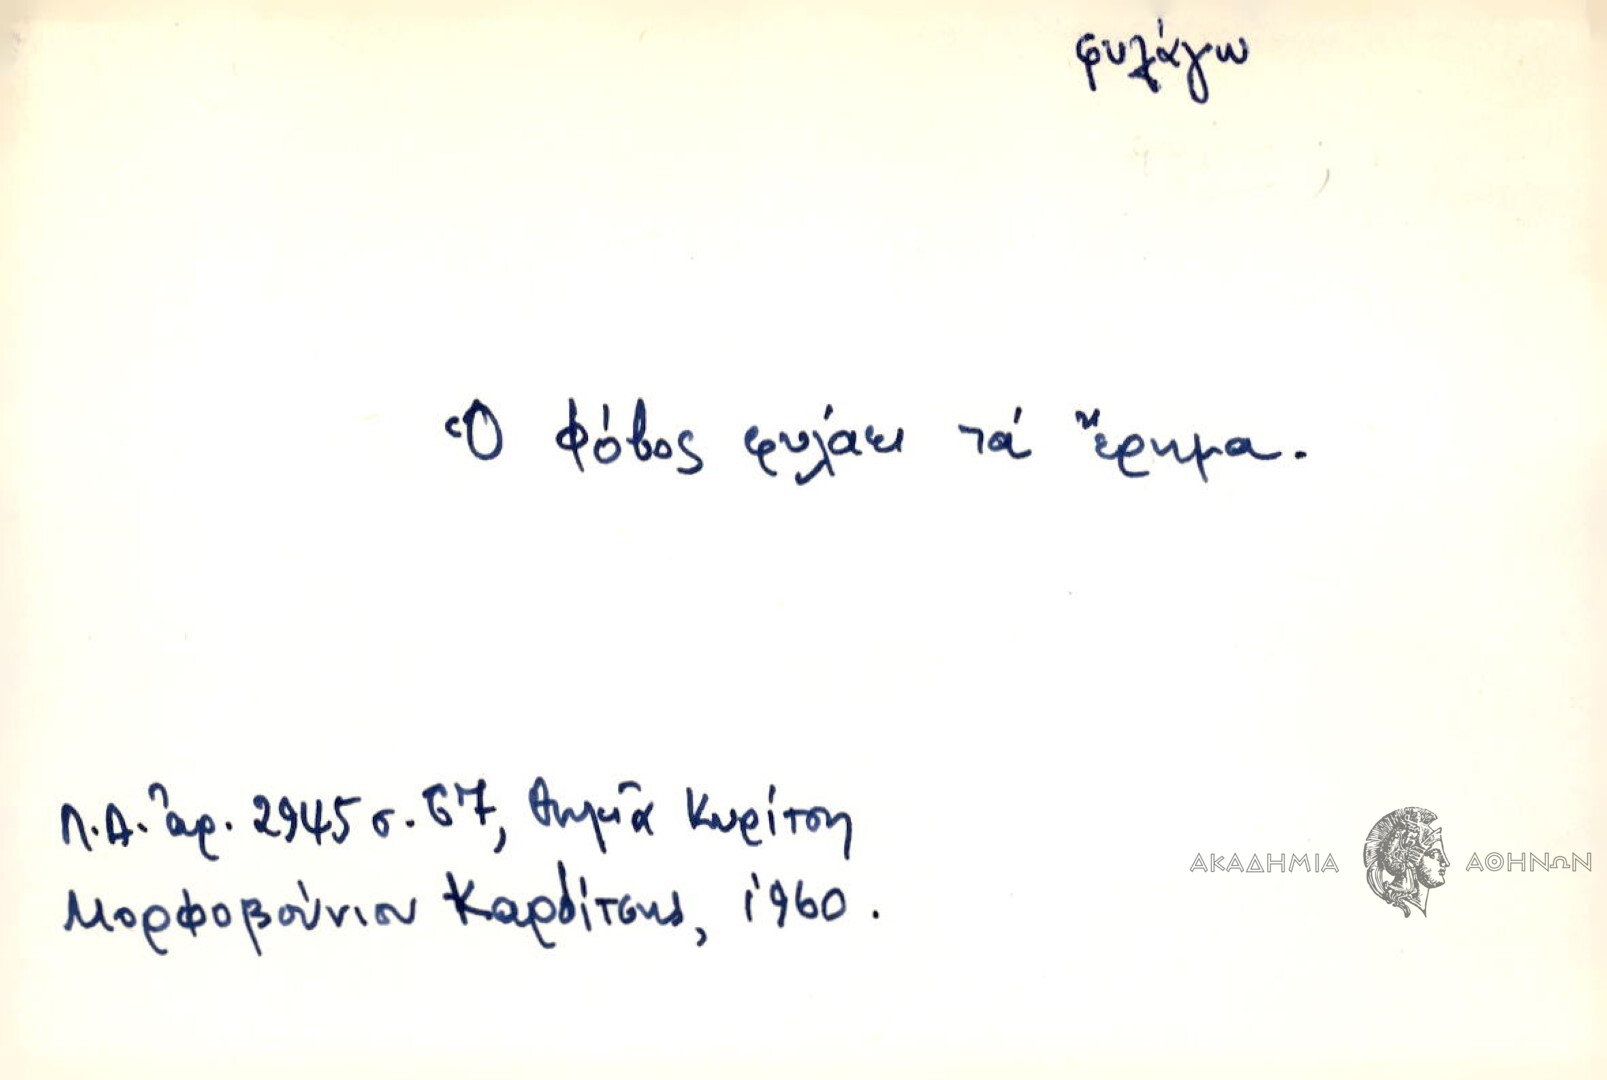 φυλάγω
Ὁ φόβος φυλάει τά ἔρημα.
Λ.Α. ἀρ. 2945 σ. 67, Κυρίτση
Μορφοβούνιον Καρδίτσης, 1960.
ΑΚΑΔΗΜΙΑ ΑΘΗΝΩΝ